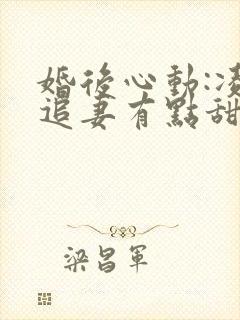 婚後心動:凌
追妻有點甜
梁昌軍